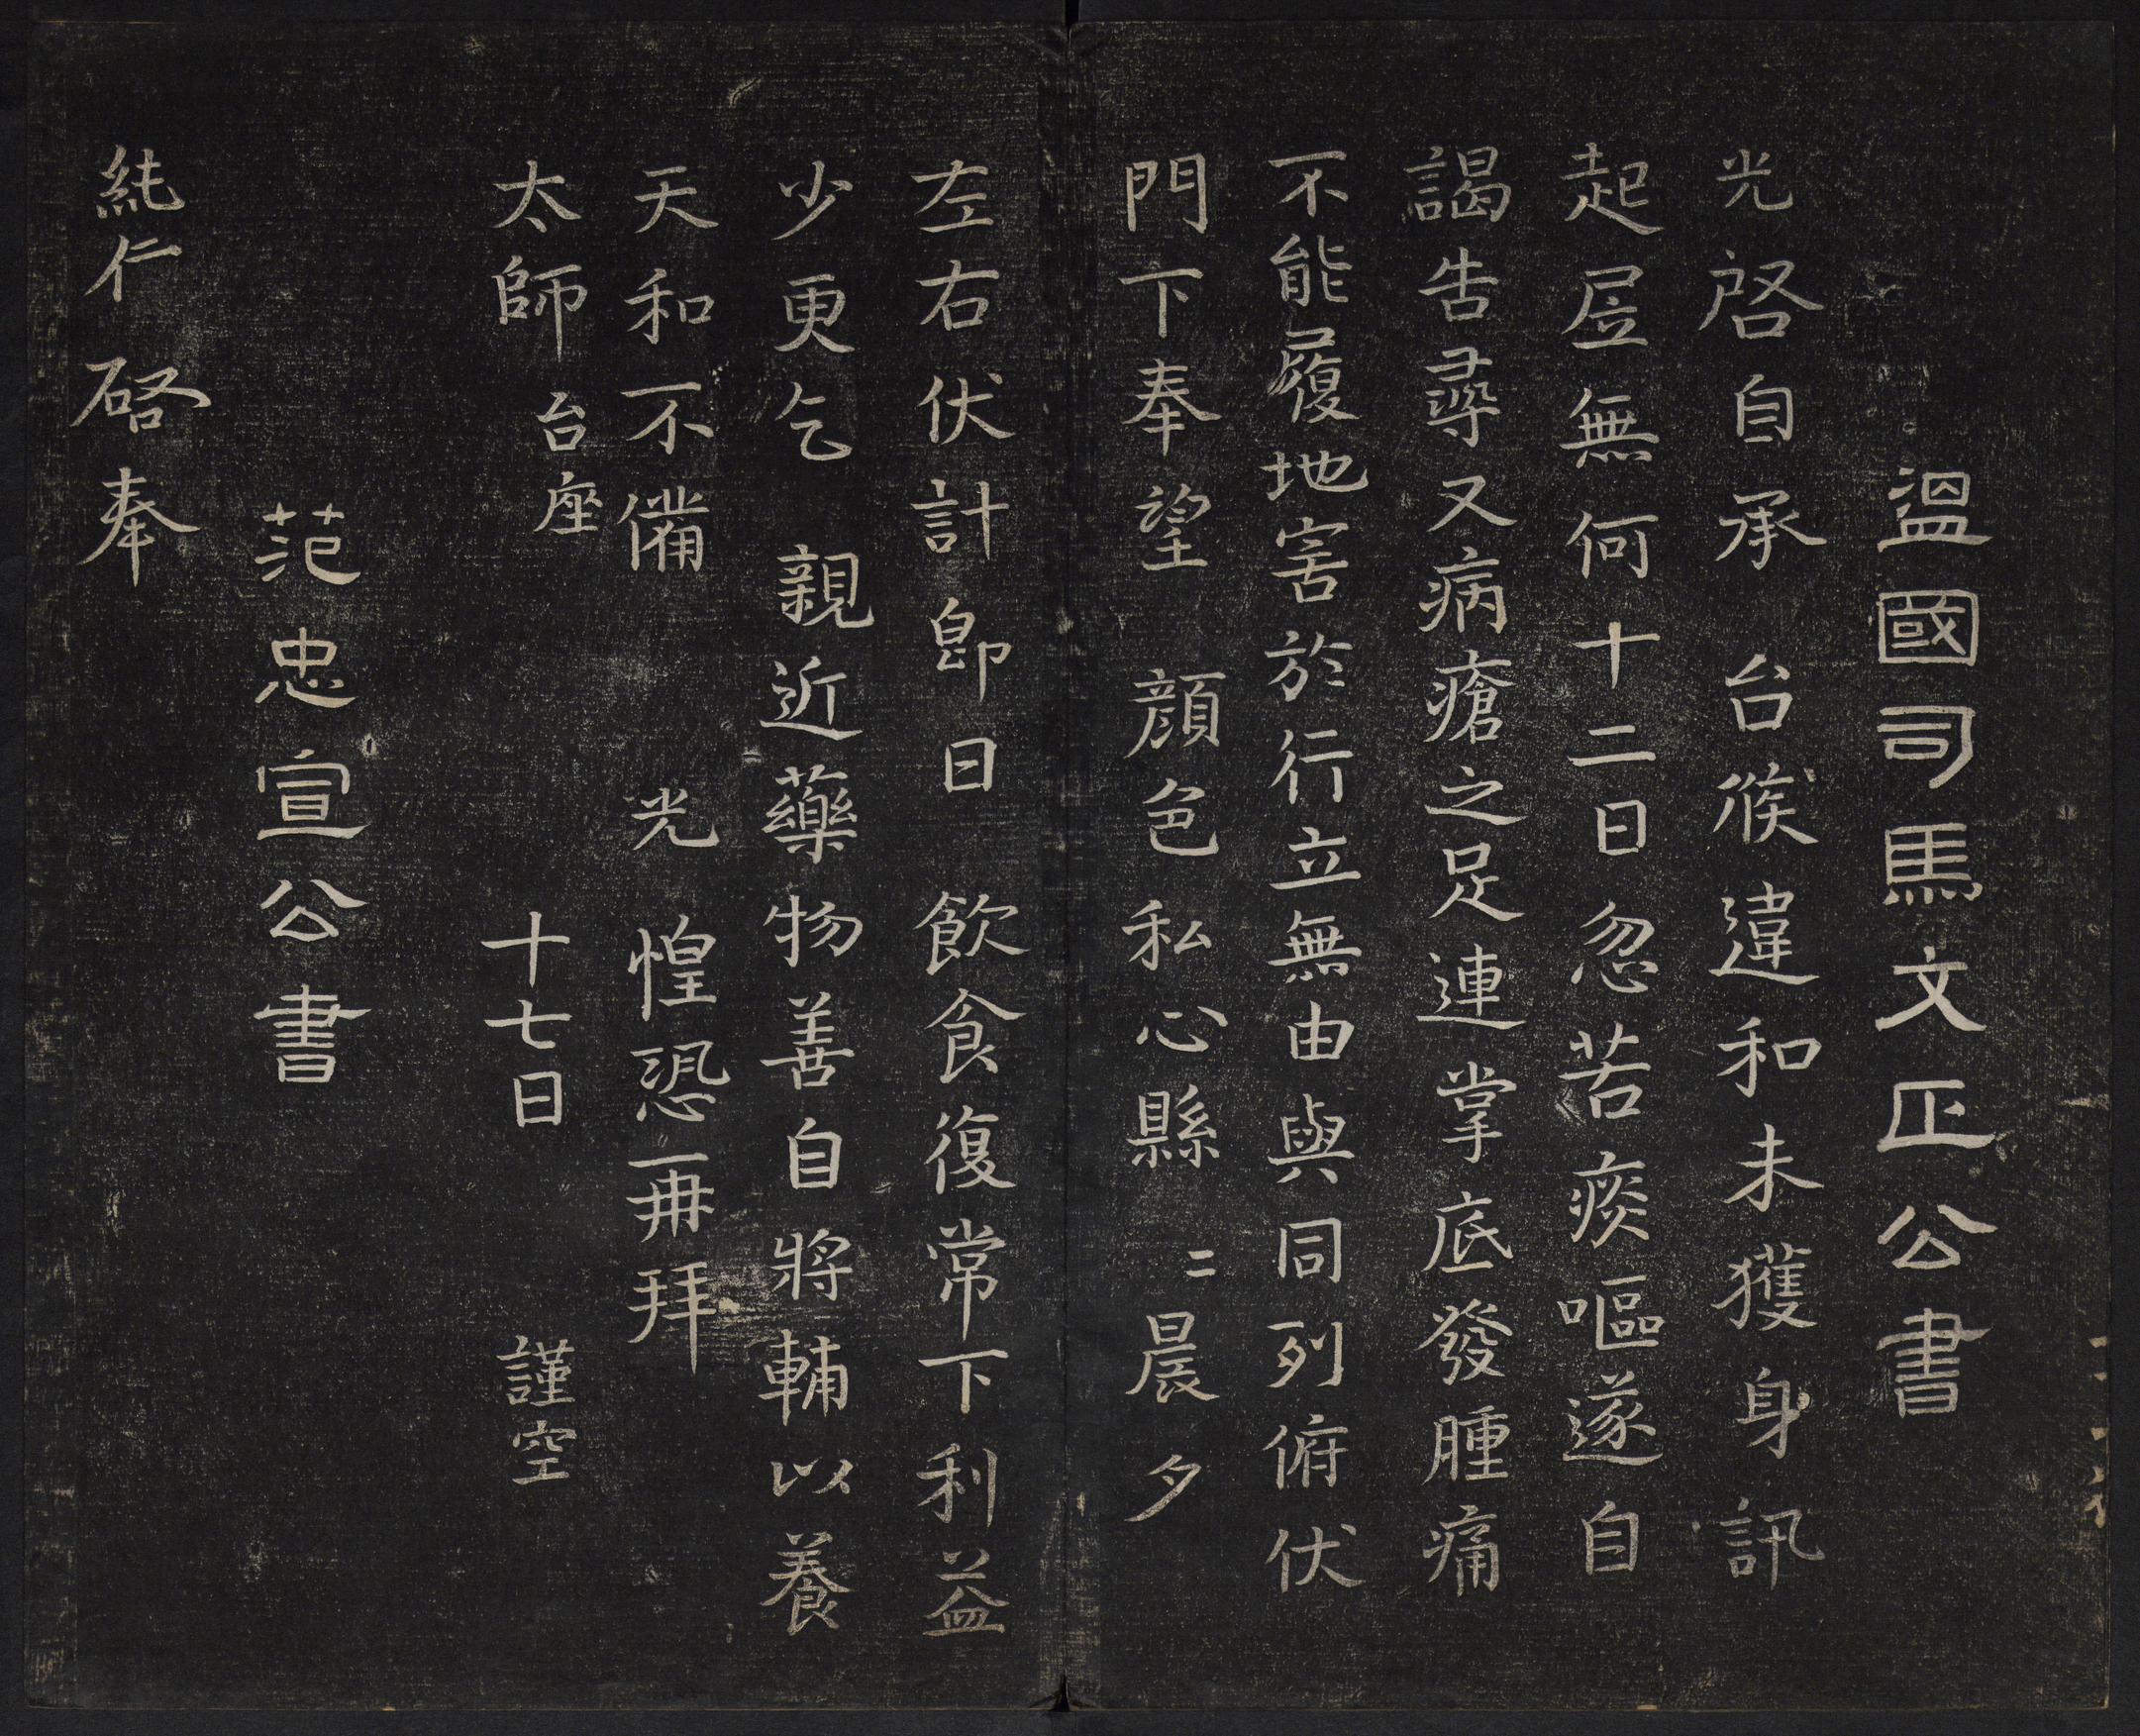 溫國司馬文正公書
光啓自承 台候違和未獲身訊
起居無何十二日忽苦痰嘔遂自
謁告尋又病瘡之足連掌底發腫痛
不能履地害於行立無由與同列俯伏
門下奉望 顏色私心縣〻晨夕
左右伏計即日 飲食復常下利益
少更乞 親近藥物善自將輔以養
天和不備 光 惶恐再拜
太師 台座 十七日 謹空
范忠宣公書
純仁啓奉